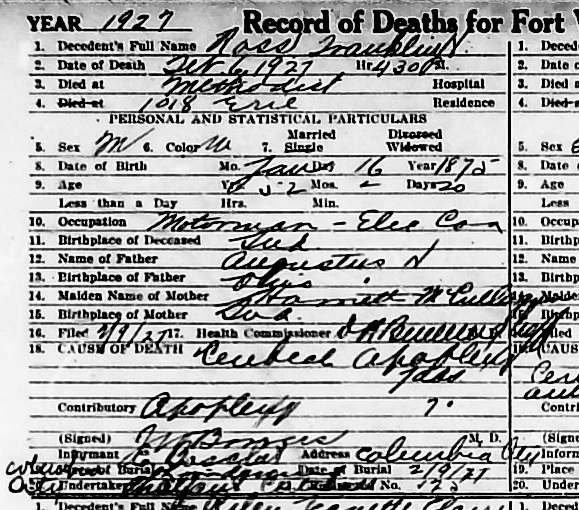 YEAR 1927 Record of Deaths for Fort
1. Decedent's Full Name Ross Franklin N. 1. Deced
2. Date of Death Feb 6, 1927 Hr. 4 30 P M. 2. Date o
3. Died at Methodist Hospital 3. Died a
4. Died at 1018 Erie Residence 4. Died at
PERSONAL AND STATISTICAL PARTICULARS
Married Divorced
5. Sex M 6. Color W 7. Single Widowed 5. Sex
8. Date of Birth Mo. Jan Da. 16 Year 1875 8. Date o
9. Age Yr. 52 Mos. - Days 20 9. Age
Less than a Day Hrs. Min. Less
10. Occupation Motorman - Elec Car 10. Occup
11. Birthplace of Deceased Ind 11. Birthp
12. Name of Father Augustus N 12. Name
13. Birthplace of Father Ohio 13. Birthp
14. Maiden Name of Mother Harriett 14. Maide
15. Birthplace of Mother Ind. 15. Birthp
16. Filed 2/9/27 17. Health Commissioner
18. CAUSE OF DEATH Cerebral Apoplexy CAUS
7 das
Contributory Apoplexy ?. Contri
(Signed) M. D. (Signe
Informant Address Columbia City Inform
Place of Burial Date of Burial 2/9/27 19. Place
City 20. Undertaker No. 122 20. Under
1. Decedent's Full Name 1. Deced